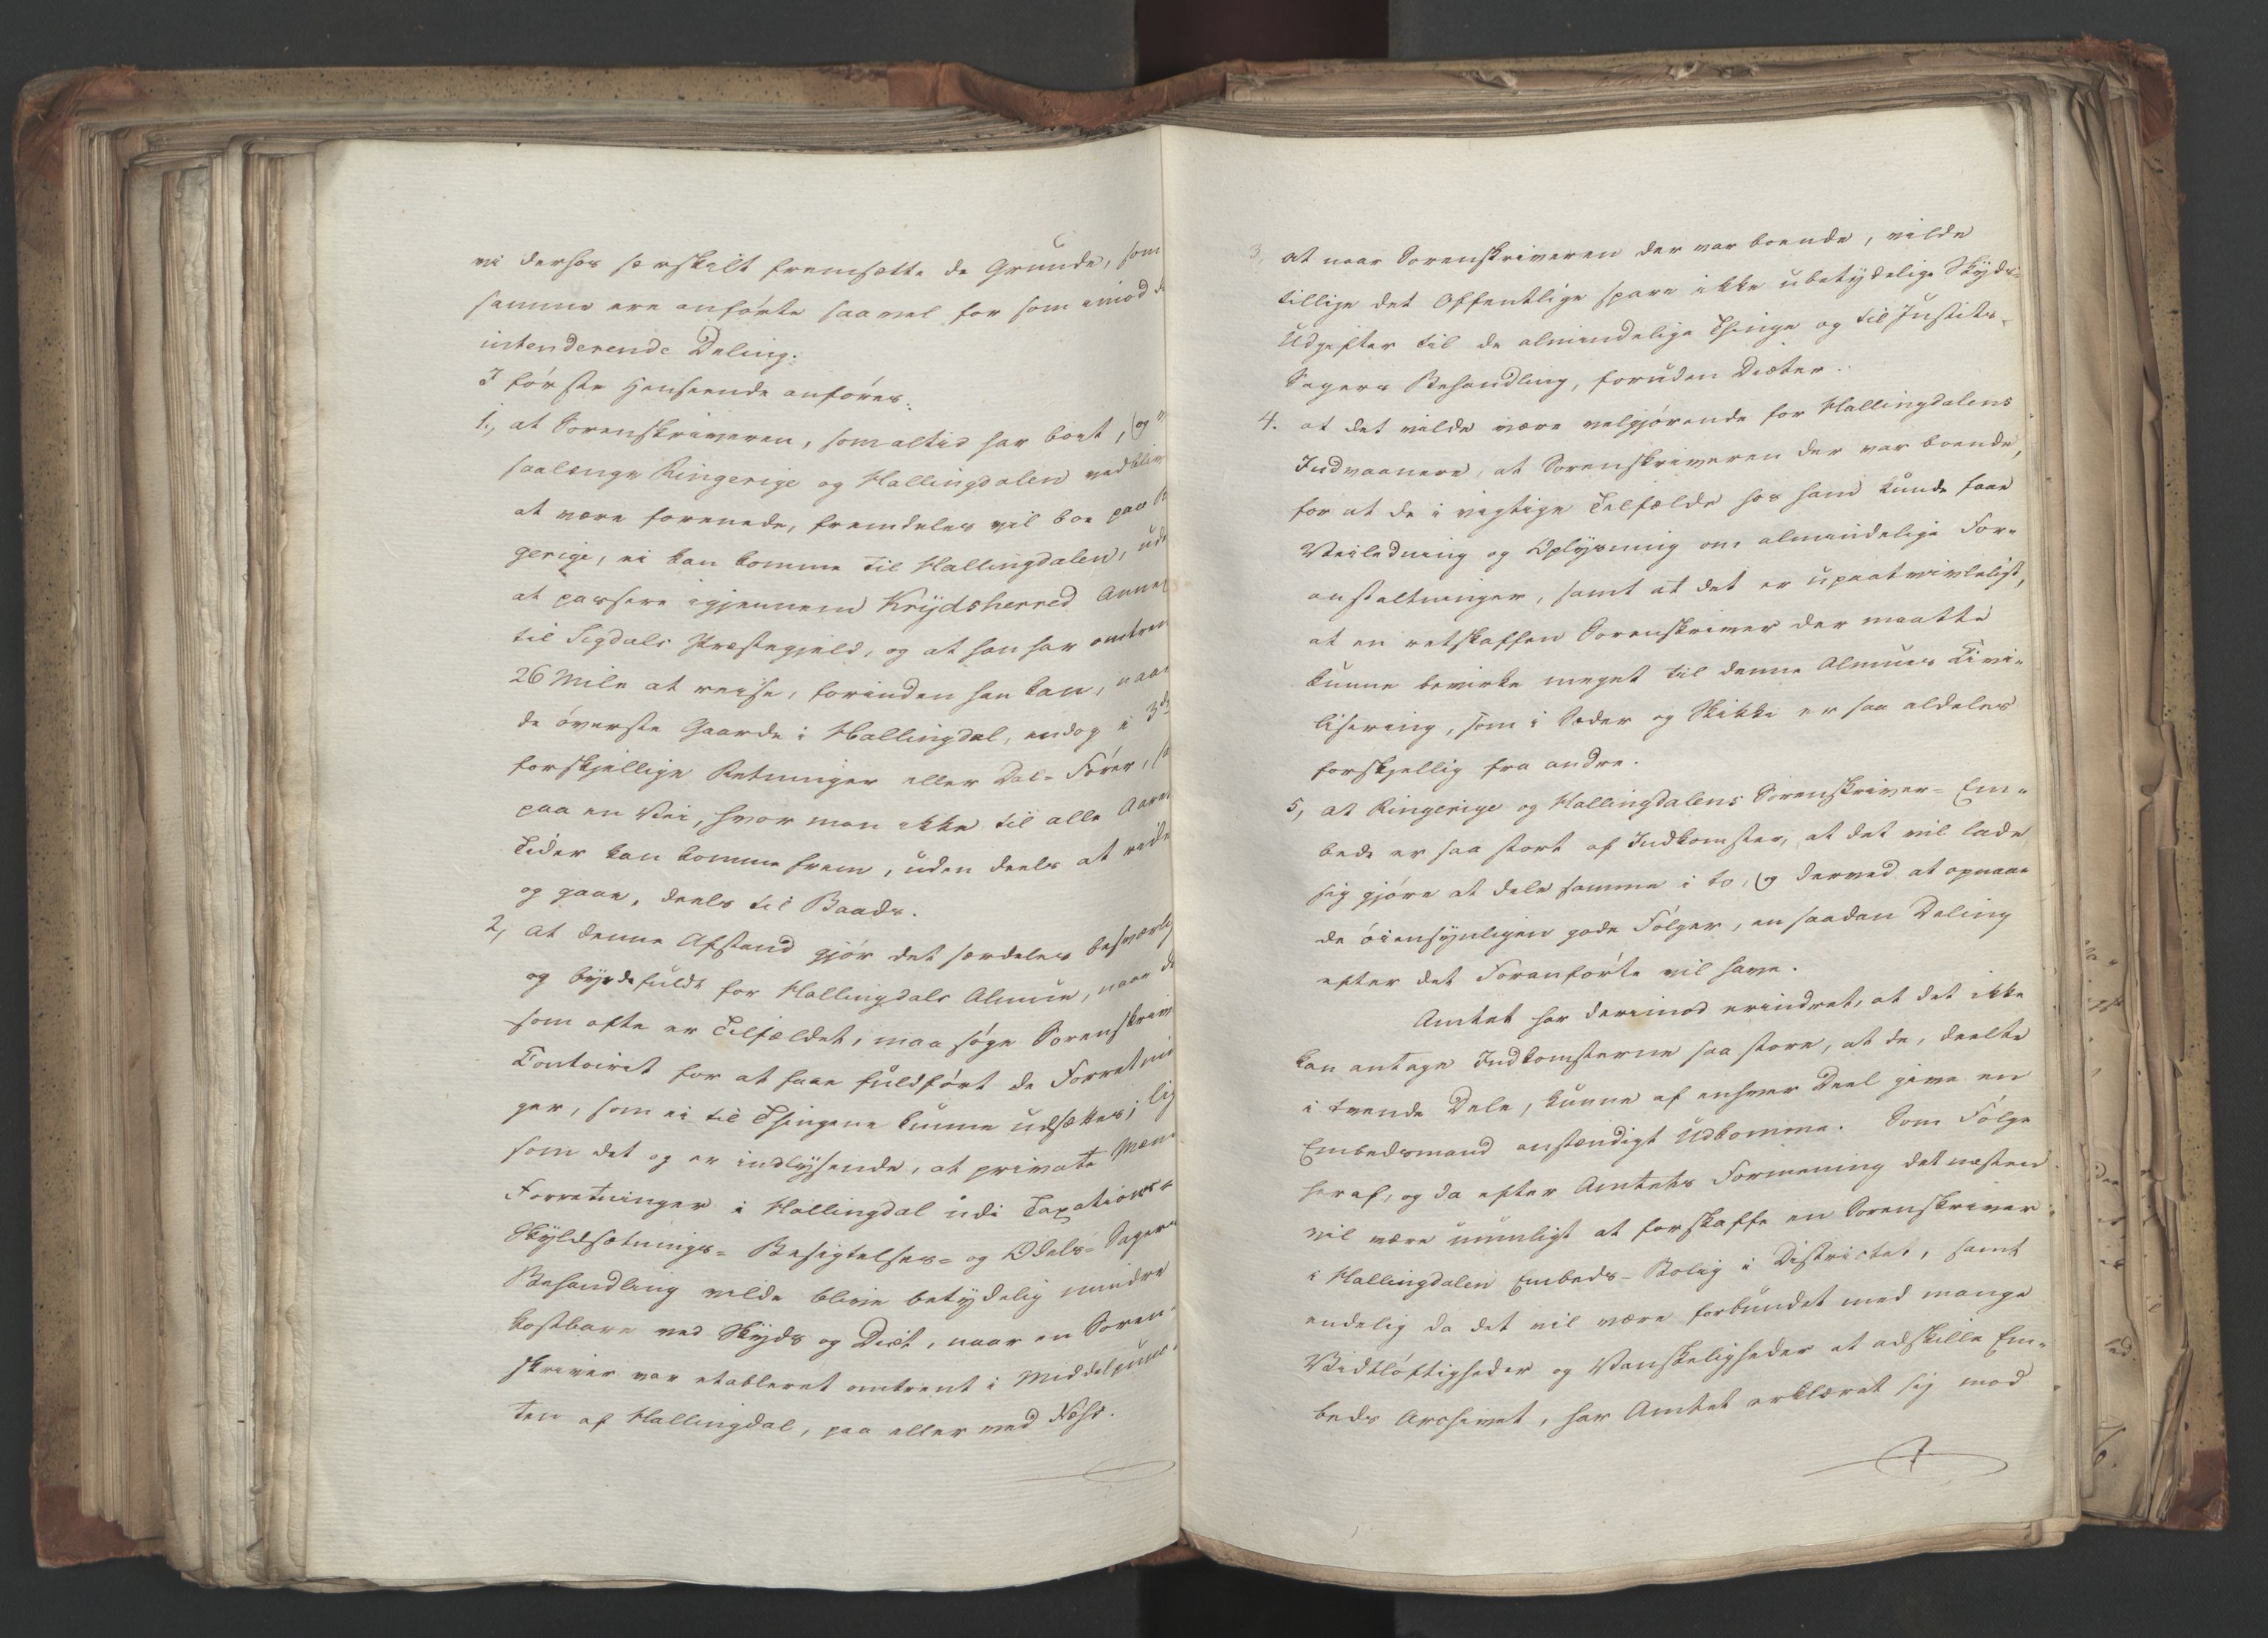 vi derhos særskilt fremsætte de Grunde, som
samme ere anførte saavel for som imod d
intenderende Deling.
I første Henseende anføres:
1., at Sorenskriveren, som altid har boet, (og
saalænge Ringerige og Hallingdalen vedbliv
at være forenede, fremdeles vil boe paa R
gerige, ei kan komme til Hallingdalen, ude
at passere igjennem Krydsherred Annex
til Sigdals Præstegjeld, og at han har omtren
26 Mile at reise, forinden han kan, naae
de øverste Gaarde i Hallingdal, endog i 3de
forskjellige Retninger eller Dal-Fører,
paa en Vei, hvor man ikke til alle Aare
Tider kan komme frem, uden deels at ride
og gaae, deels til Baads.
2, at denne Afstand gjør det særdeles besværlig
og byrdefuldt for Hallingdals Almue, naar de
som ofte er Tilfældet, maa søge Sorenskriv
Contoiret for at faae fuldført de Forretnin
ger, som ei til Thingene kunne udsættes; lig
som det og er indlysende, at private Mæn
Forretninger i Hallingdal udi Taxations-
Skyldsætnings- Besigtelses- og Odels- Sagers
Behandling vilde blive betydelig mindre
kostbare ved Skyds og Diæt, naar en Soren-
skriver var etableret omtrent i Middelpunc
ten af Hallingdal, paa eller ved Næss.
3, at naar Sorenskriveren der var boende, vilde
tillige det Offentlige spare ikke ubetydelige Skyds-
Udgifter til de almindelige Thinge og til Justits-
Sagers Behandling, foruden Diæter.
4. at det vilde være velgjørende for Hallingdalens
Indvaanere, at Sorenskriveren der var boende,
for at de i vigtige Tilfælde hos ham kunde faae
Veiledning og Oplysning om almindelige For-
anstaltninger, samt at det er upaatvivleligt,
at en retskaffen Sorenskriver der maatte
kunne bevirke meget til denne Almues Civi-
lisering, som i Sæder og Skikke er saa aldeles
forskjellig fra andre.
5, at Ringerige og Hallingdalens Sorenskriver- Em-
bede er saa stort af Indkomster, at det vil lade
sig gjøre at dele samme i to, og derved at opnaae
de øiensynligen gode Følger, en saadan Deling
efter det Foranførte vil have.
Amtet har derimod erindret, at det ikke
kan antage Indkomsterne saa store, at de, deelte
i tvende Dele, kunne af enhver Deel give en
Embedsmand anstændigt Udkomme. Som Følge
heraf, og da efter Amtets Formening det næsten
vil være umuligt at forskaffe en Sorenskriver
i Hallingdalen Embeds-Bolig i Districtet, samt
endelig da det vil være forbundet med mange
Vidtløftigheder og Vanskeligheder at adskille Em-
beds Archivet, har Amtet erklæret sig mod